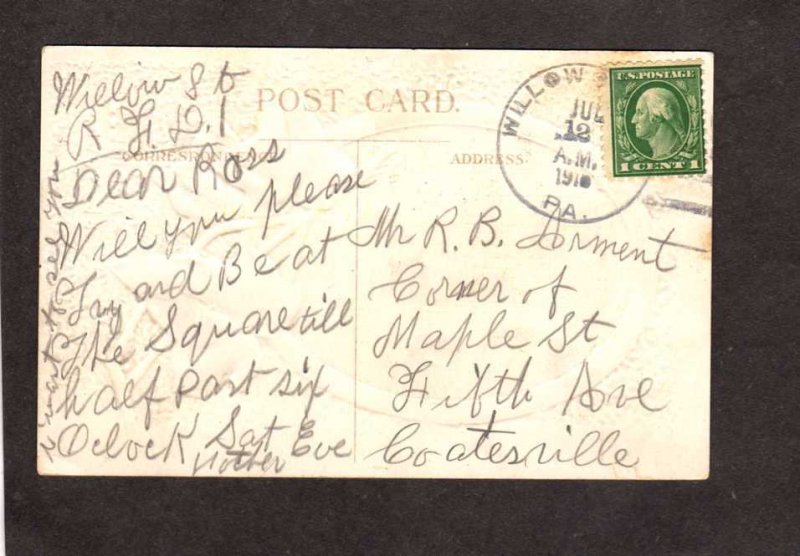 Willow St
R. F. D. 1
POST CARD.
CORRESPONDENCE
ADDRESS
Dear Ross
Will you please
Try and Be at
The Square till
half Past six
Oclock Sat Eve
Mother
want to see you
WILLOW
JUL
12
A.M.
PA.
U.S. POSTAGE
1 CENT 1
Mr R. B. Dorment
Corner of
Maple St
Fifth Ave
Coatesville